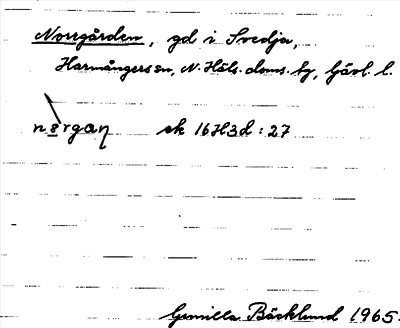 Norrgården, gd i Svedja,
Harmångers sn, N. Häls. doms. by, Gävl. l.
ek 16H3d:27
Gunilla Bäcklund 1965.